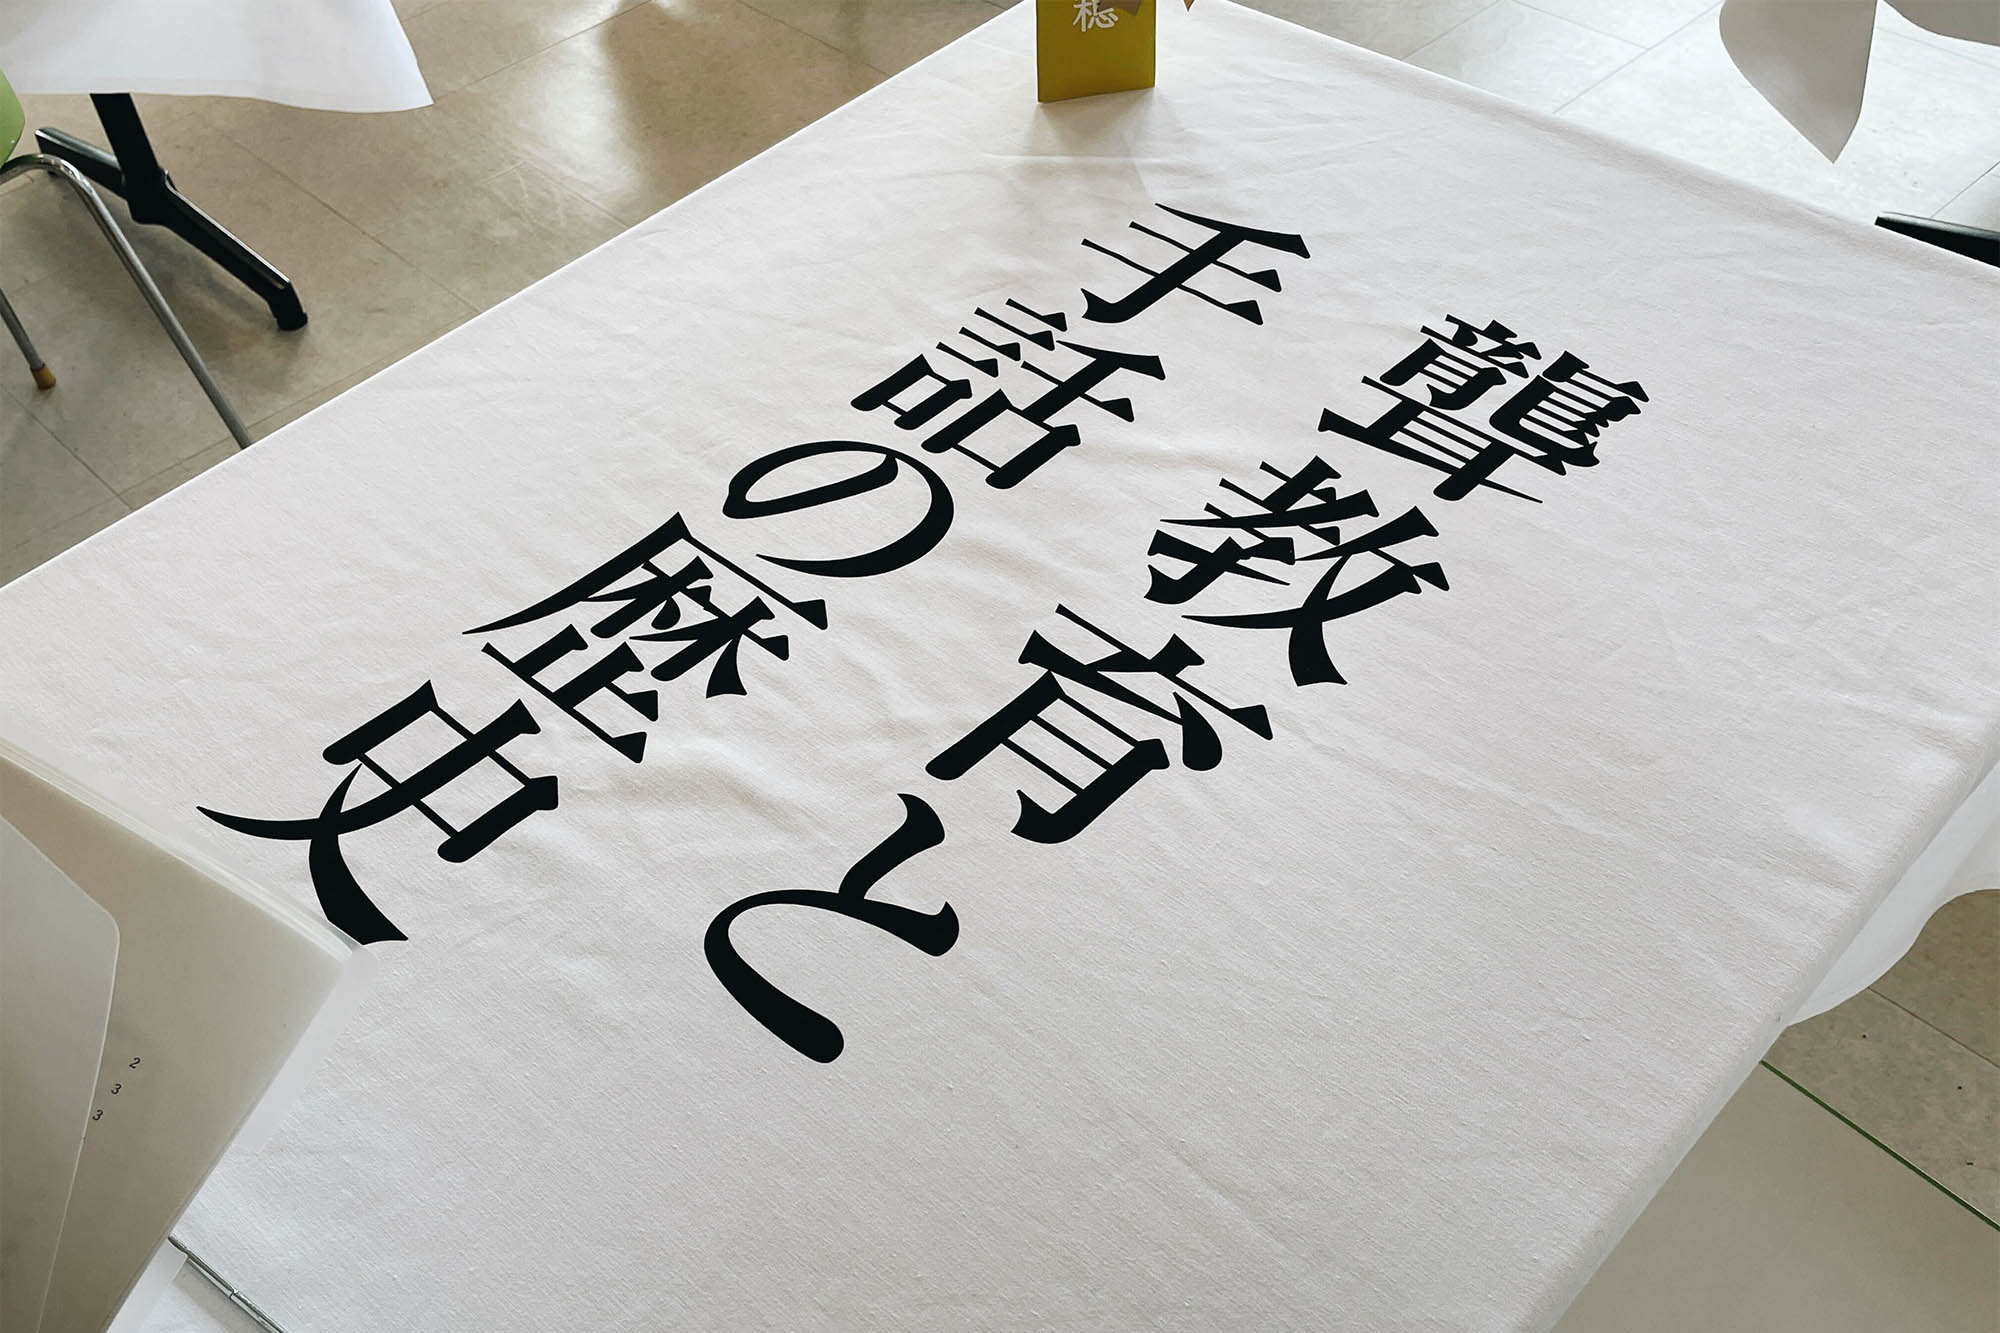 聾教育と
手話の歴史
233